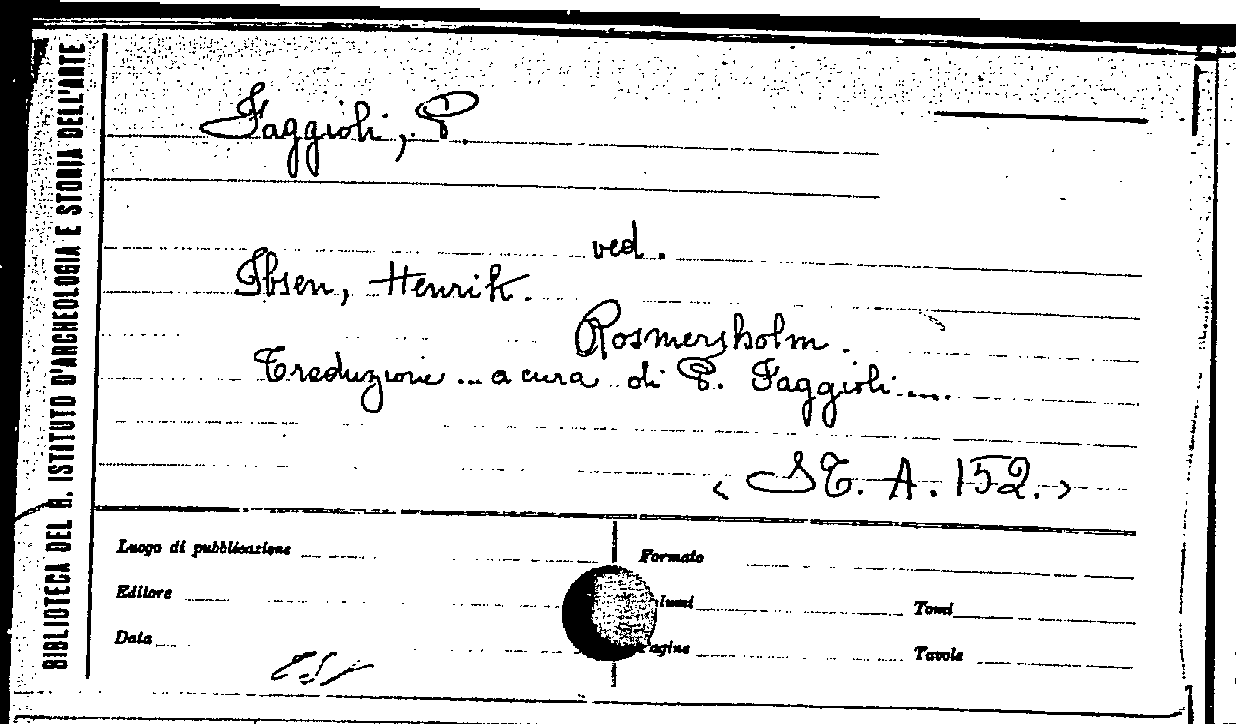 BIBLIOTECA DEL R. ISTITUTO D'ARCHEOLOGIA E STORIA DELL'ARTE
Faggioli, P.
ved.
Ibsen, Henrik.
Rosmersholm.
Traduzione ... a cura di P. Faggioli ....
< ST. A. 152. >
Luogo di pubblicazione
Formato
Editore
lumi
Tomi
Data
agine
Tavole